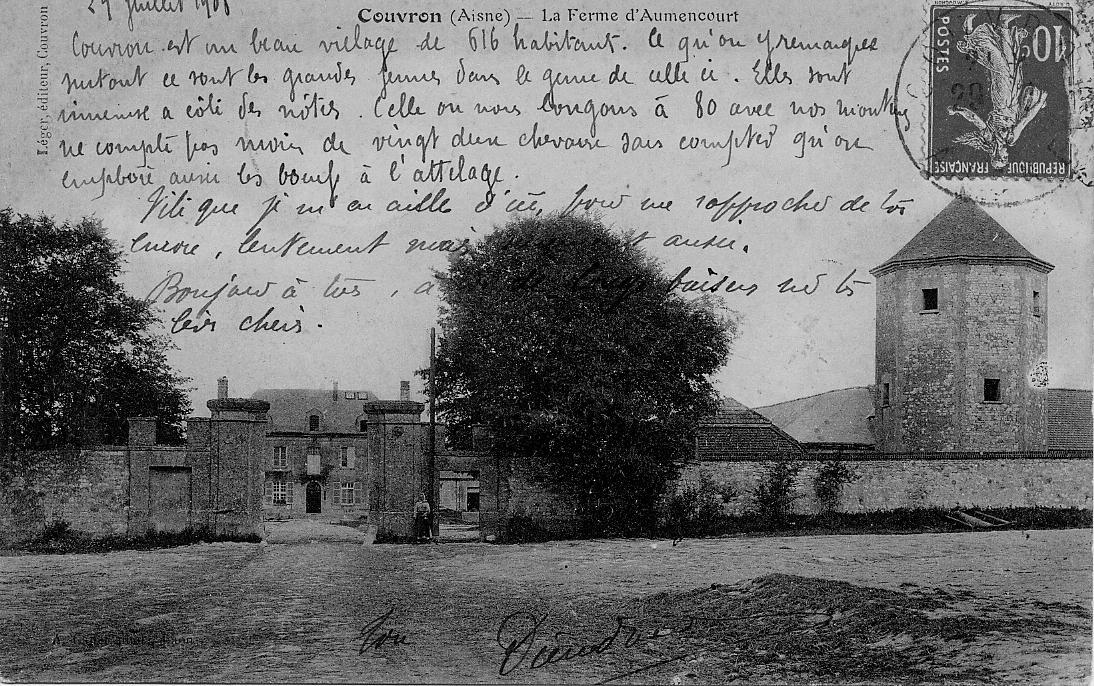 29 Juillet 190
Couvron (Aisne) — La Ferme d'Aumencourt
Léger, éditeur, Couvron
POSTES
10
REPUBLIQUE FRANÇAISE
Couvron est un beau village de 616 habitants. Ce qu'on y remarque
surtout ce sont les grandes fermes dans le genre de celle ci. Elles sont
immense a côté des nôtres. Celle ou nous logons à 80 avec nos
ne compte pas moins de vingt deux chevaux sans compter qu'on
emploie aussi les boeufs à l'attelage.
Vite que je m'en aille d'ici, pour me rapprocher de toi
encore, lentement mais aussi.
Bonjour à tous, de longs baisers
chers.
Ton